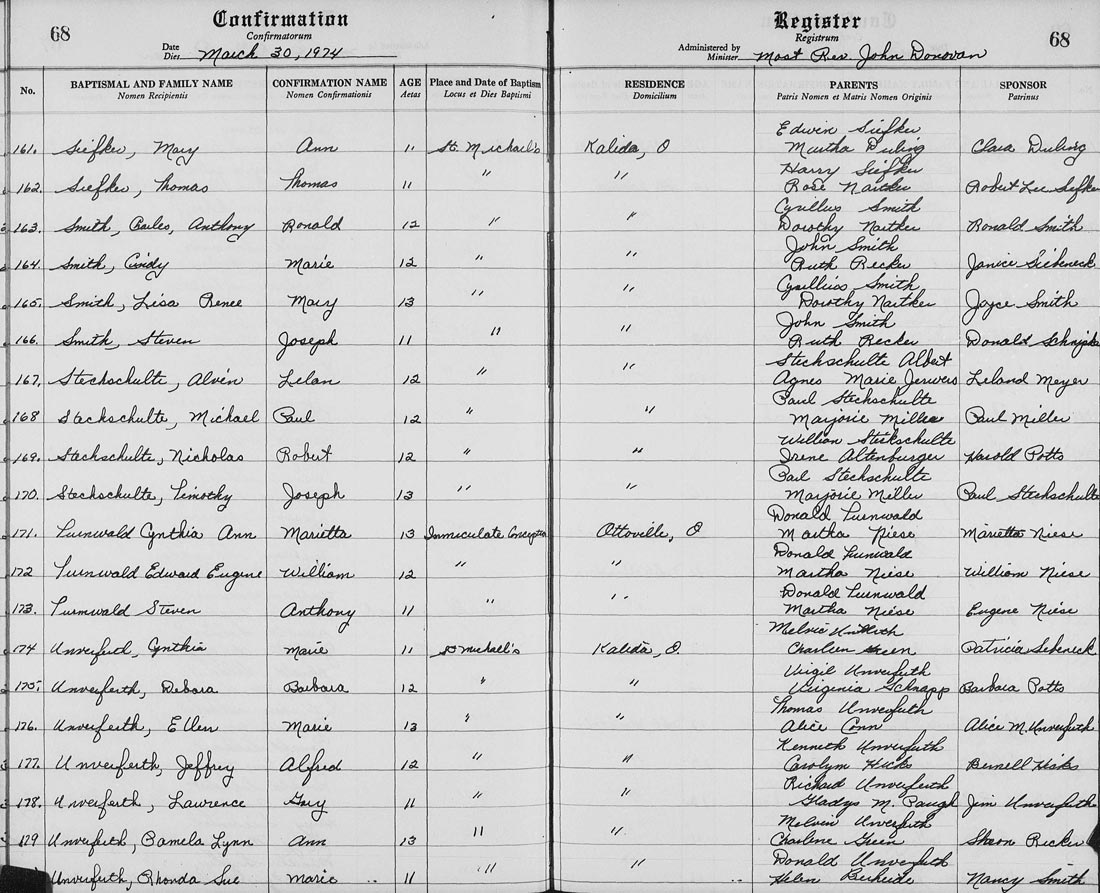 68 Confirmation
Confirmatorum
Date
Dies March 30, 1974
Register 68
Registrum
Administered by
Minister Most Rev. John Donovan
No. BAPTISMAL AND FAMILY NAME CONFIRMATION NAME AGE Place and Date of Baptism RESIDENCE PARENTS SPONSOR
Nomen Recipientis Nomen Confirmationis Aetas Locus et Dies Baptismi Domicilium Patris Nomen et Matris Nomen Originis Patrinus
Edwin Siefker
161. Siefker, Mary Ann 11 St. Michael's Kalida, O Martha Duling Clara Duling
Harry Siefker
162. Siefker, Thomas Thomas 11 " " Rose Nartker Robert Lee Siefker
Cyrillus Smith
163. Smith, Charles, Anthony Ronald 12 " " Dorothy Nartker Ronald Smith
John Smith
164. Smith, Cindy Marie 12 " " Ruth Recker Janice Siebeneck
Cyrillus Smith
165. Smith, Lisa Renee Mary 13 " " Dorothy Nartker Joyce Smith
John Smith
166. Smith, Steven Joseph 11 " " Ruth Recker Donald
Steckschulte Albert
167. Steckschulte, Alvin Lelan 12 " " Agnes Marie Jerwers Leland Meyer
Paul Steckschulte
168 Steckschulte, Michael Paul 12 " " Marjorie Miller Paul Miller
William Steckschulte
169. Steckschulte, Nicholas Robert 12 " " Irene Altenburger Harold Potts
Paul Steckschulte
170. Steckschulte, Timothy Joseph 13 " " Marjorie Miller Paul Steckschulte
Donald Turnwald
171. Turnwald Cynthia Ann Marietta 13 Immaculate Conception Ottoville, O Martha Niese Marietta Niese
Donald Turnwald
172 Turnwald Edward Eugene William 12 " " Martha Niese William Niese
Donald Turnwald
173. Turnwald Steven Anthony 11 " " Martha Niese Eugene Niese
Melvin
174 Unverferth, Cynthia Marie 11 St Michael's Kalida, O. Charleen Green Patricia Sebeneck
Virgil Unverferth
175. Unverferth, Debora Barbara 12 " " Virginia Schnapp Barbara Potts
Thomas Unverferth
176. Unverferth, Ellen Marie 13 " " Alice Conn Alice M. Unverferth
Kenneth Unverferth
177. Unverferth, Jeffrey Alfred 12 " " Carolym Hicks Bernell Hicks
Richard Unverferth
178. Unverferth, Lawrence Gary 11 " " Gladys M. Paugh Jim Unverferth
Melvin Unverferth
179 Unverferth, Pamela Lynn Ann 13 " " Charlene Green Sharon Ricker
Donald Unverferth
Unverferth, Rhonda Sue Marie 11 " " Helen Nancy Smith